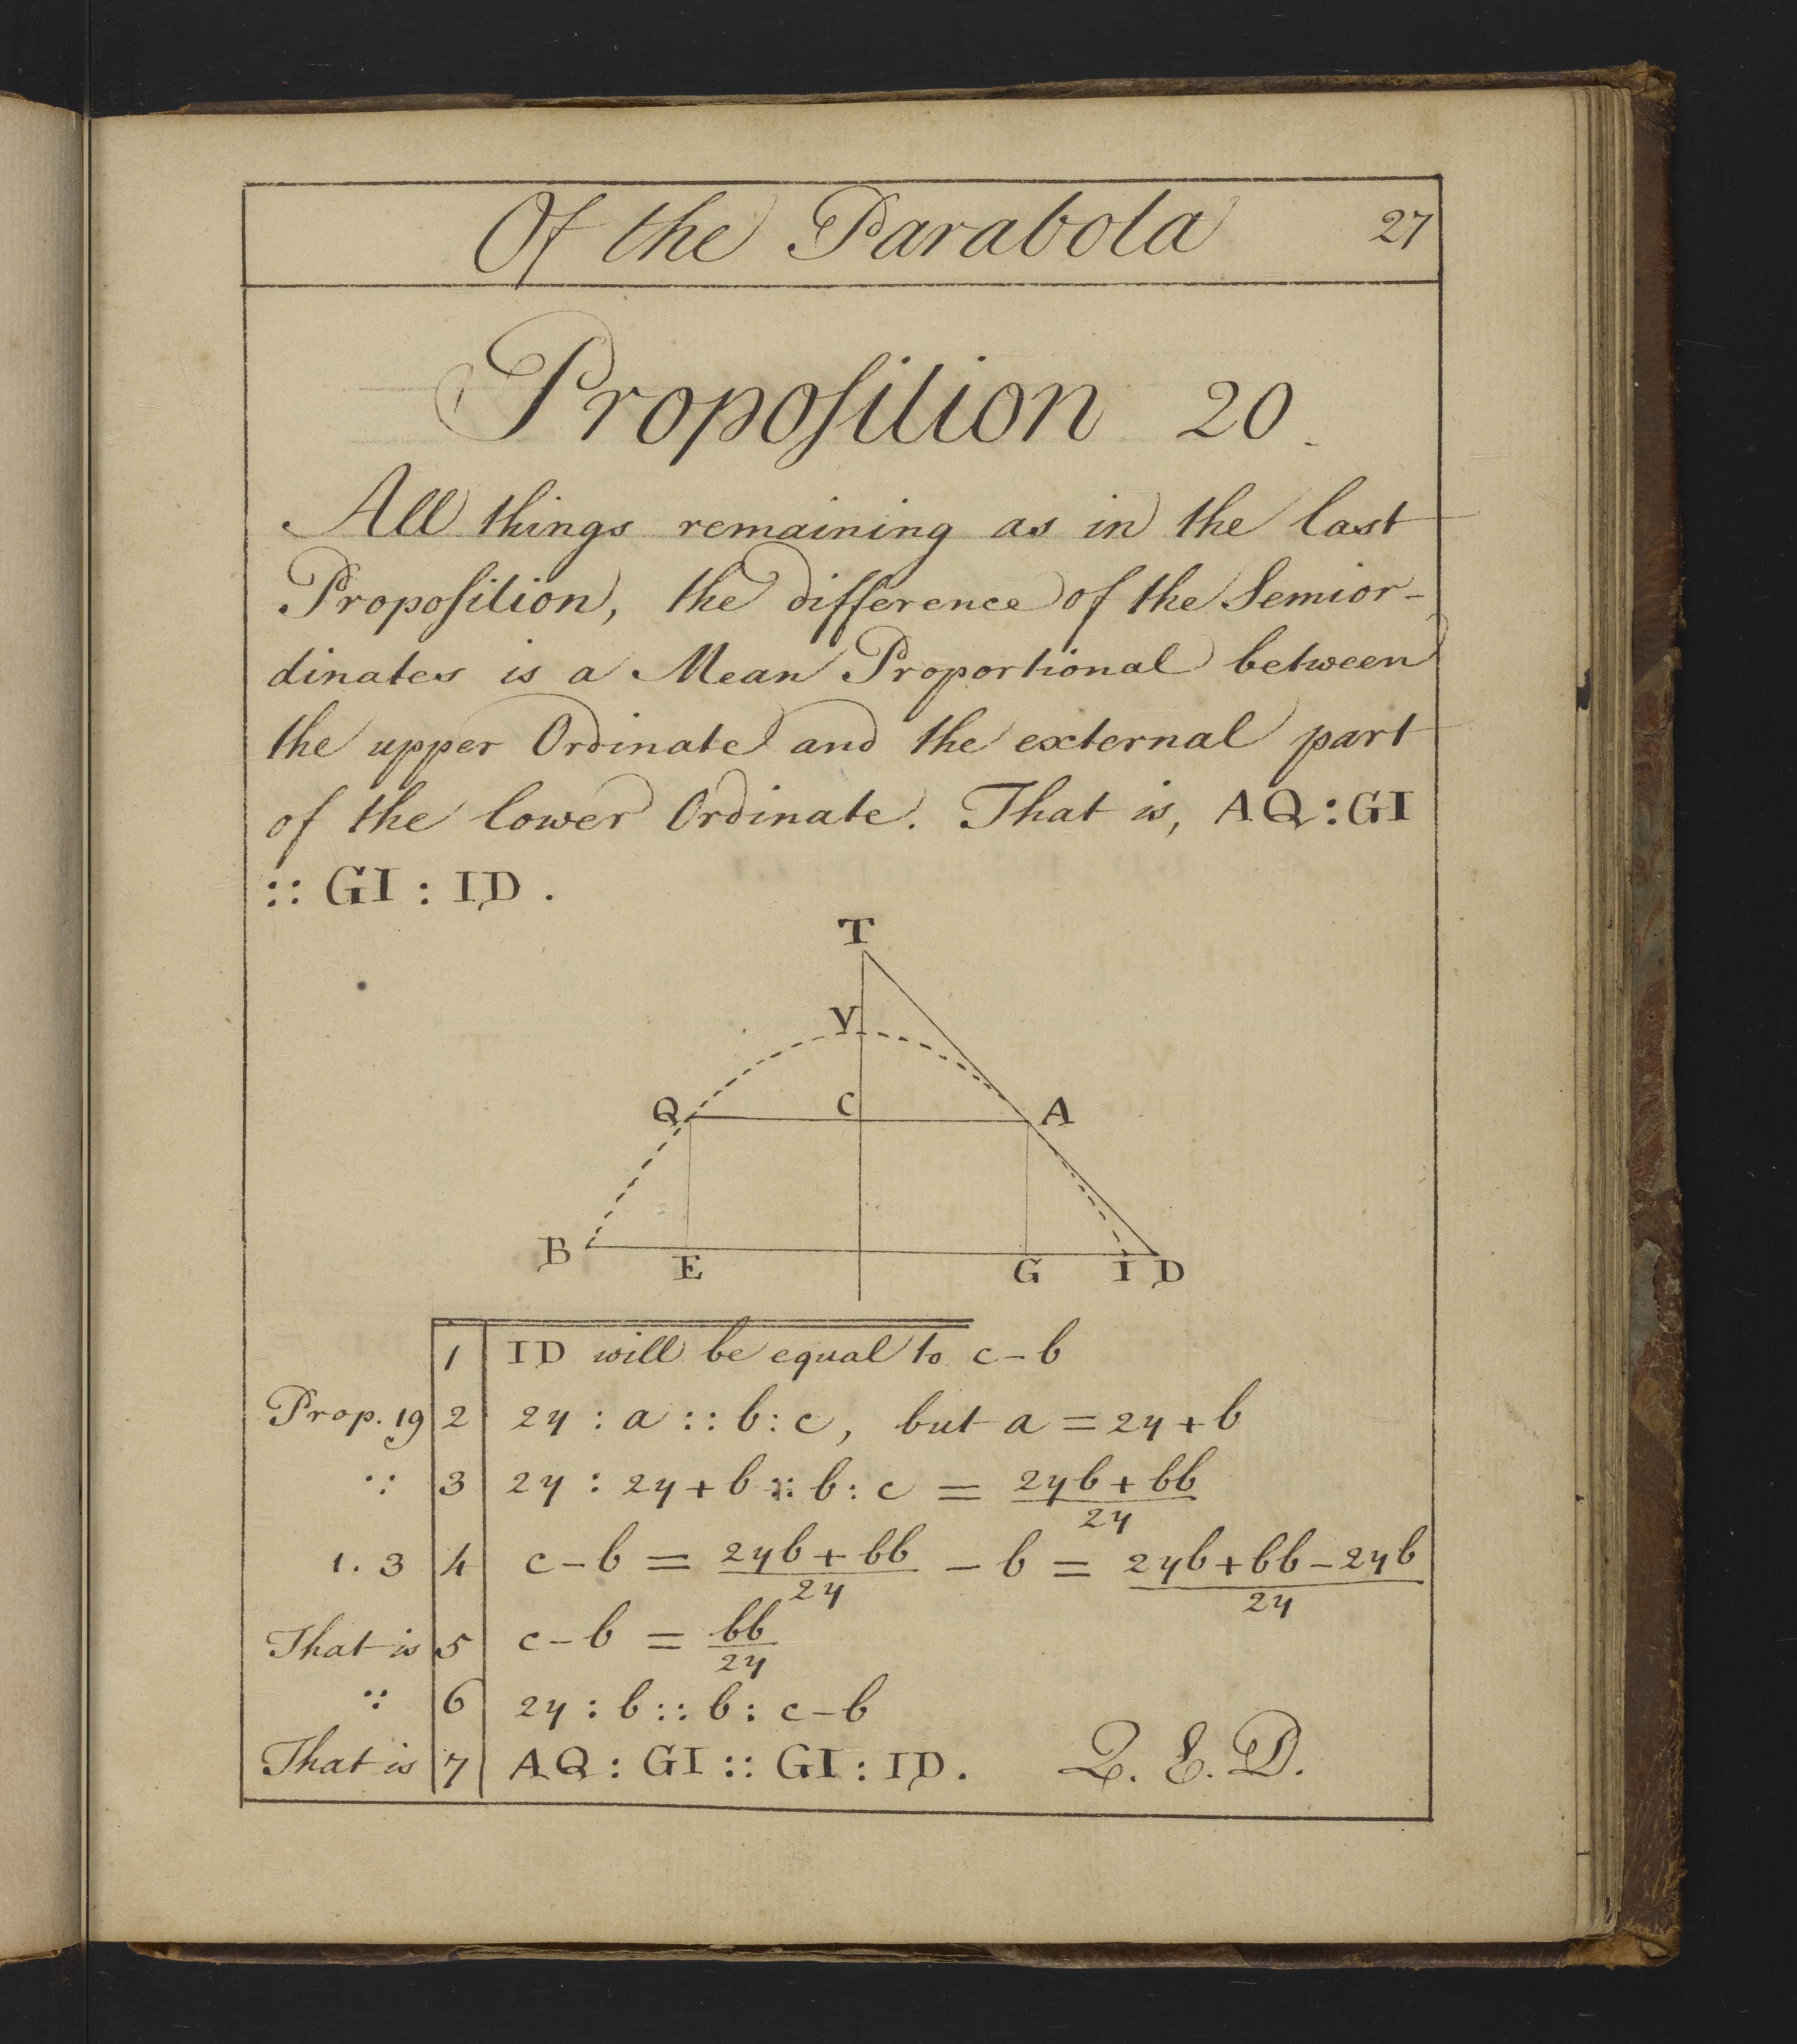 Of the Parabola 27
Propoſition 20.
All things remaining as in the last
Propoſition, the difference of the Semior-
dinates is a Mean Proportional between
the upper Ordinate and the external part
of the lower Ordinate. That is, AQ:GI
:: GI : ID .
T
V
Q C A
B E G I D
1 ID will be equal to c-b
Prop. 19 2 2y : a :: b : c, but a = 2y + b
∵ 3 2y : 2y + b :: b : c = 2yb + bb / 2y
1. 3 4 c - b = 2yb + bb / 2y - b = 2yb + bb - 2yb / 2y
That is 5 c - b = bb / 2y
∵ 6 2y : b :: b : c - b
That is 7 AQ : GI :: GI : ID. Q. E. D.